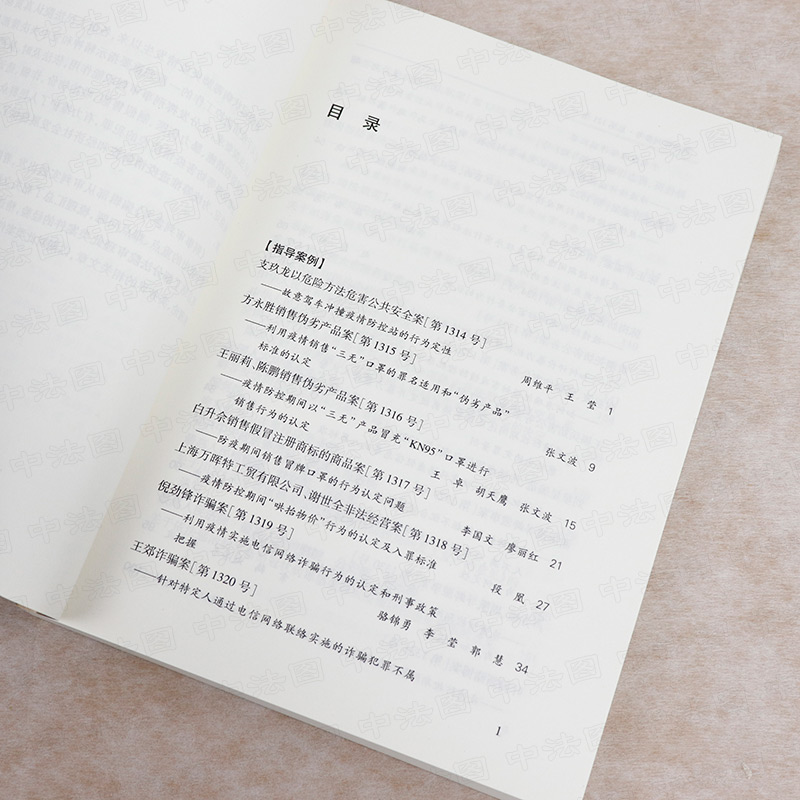 目 录
【指导案例】
支玖龙以危险方法危害公共安全案[第1314号]
——故意驾车冲撞疫情防控站的行为定性
周维平 王 莹 1
方永胜销售伪劣产品案[第1315号]
——利用疫情销售“三无”口罩的罪名适用和“伪劣产品”
标准的认定
张文波 9
王丽莉、陈鹏销售伪劣产品案[第1316号]
——疫情防控期间以“三无”产品冒充“KN95”口罩进行
销售行为的认定
王 卓 胡天鹰 张文波 15
白升余销售假冒注册商标的商品案[第1317号]
——防疫期间销售冒牌口罩的行为认定问题
李国文 廖丽红 21
上海万晖特工贸有限公司、谢世全非法经营案[第1318号]
——疫情防控期间“哄抬物价”行为的认定及入罪标准
段 凰 27
倪劲锋诈骗案[第1319号]
——利用疫情实施电信网络诈骗行为的认定和刑事政策
把握
骆锦勇 李 莹 郭 慧 34
王郊诈骗案[第1320号]
——针对特定人通过电信网络联络实施的诈骗犯罪不属
I
中法图